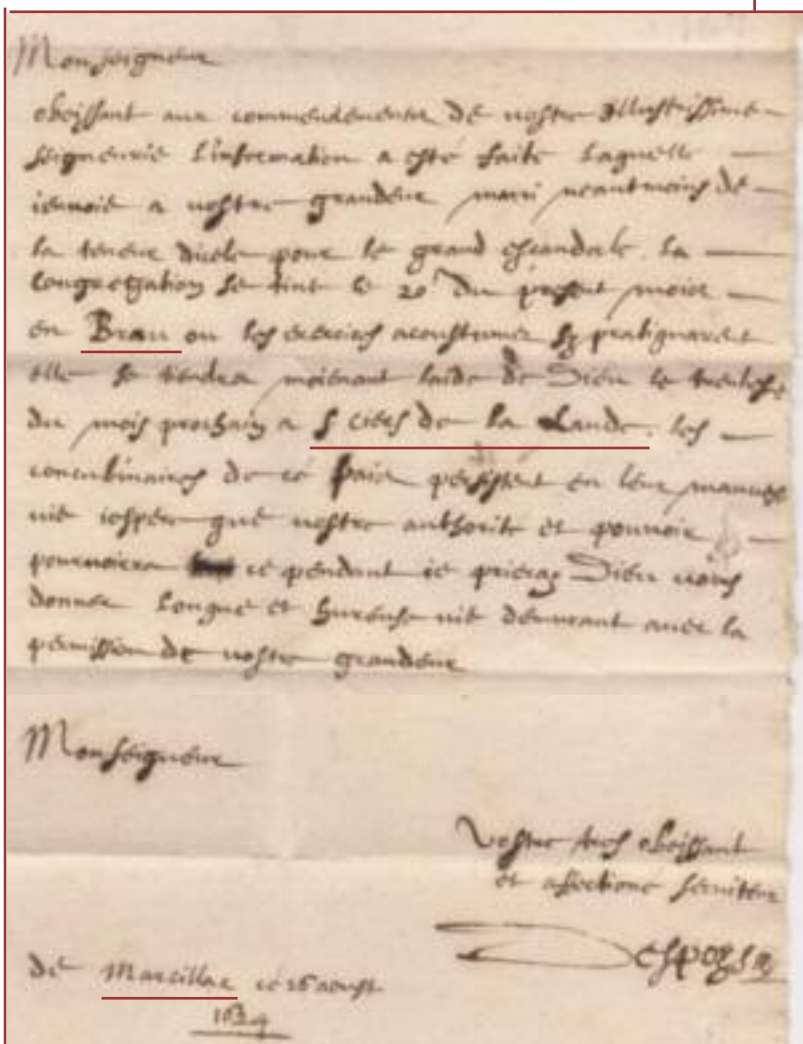 Monseigneur
obeissant aux commendements de vostre Illustrissime
seigneurie l'information a esté faite laquelle
ienvoie a vostre grandeur marri neantmoins de
la teneur dicele pour le grand escandale. la
congregation se tint le 20 du present mois
en Brau ou les exercices acoustumes sy pratiquarent
elle se tiendra moienant laide de Dieu le
du mois prochain a S Ciers de la Lande. les
concubinaires de ce pais persistent en leur mauvese
vie iespere que vostre authorité et pouvoir y
pourvoiera ce pendant ie prieray Dieu vous
donner longue et hureuse vie demurant avec la
permission de vostre grandeur
Monseigneur
Vostre tres obeissant
et afectioné serviteur
de Marcillac ce 26 aoust